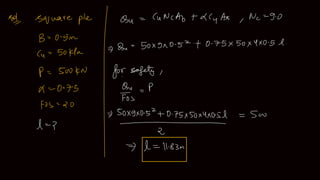 sol square pile
B = 0.5m
Cu = 50 kPa
P = 500 kN
α = 0.75
FOS = 2.0
l = ?
Qu = CuNcAb + αCuAs , Nc = 9.0
⇒ Qu = 50×9×0.5² + 0.75×50×4×0.5 l
for safety,
Qu/FOS = P
⇒ (50×9×0.5² + 0.75×50×4×0.5l)/2 = 500
⇒ l = 11.83m